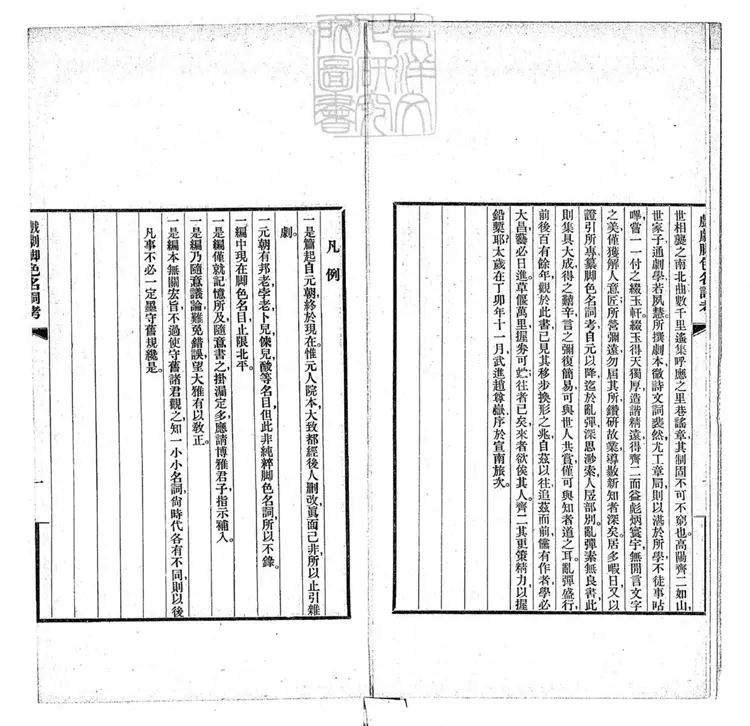 世相襲之南北曲數千里遙集呼應之里巷謠章其制固不可不窮也高陽齊二如山
世家子通劇學若夙慧所撰劇本徵詩文詞斐然尤工章局則以湛於所學不徒事呫
嗶嘗一一付之綴玉軒綴玉得天獨厚造諧精遠得齊二而益彪炳寰宇無閒言文字
之美僅獲解人意匠所營彌遠勿屆其所鑽研故業導敭新知者深矣居多暇日又以
證引所專纂脚色名詞考自元以降迄於亂彈深思渺索人歷部別亂彈素無良書此
則集具大成得之囏辛言之彌復簡易可與世人共賞僅可與知者道之耳亂彈盛行
前後百有餘年觀於此書已見其移步換形之兆自茲以往追茲而前儻有作者學必
大昌藝必日進草偃萬里握券可貯往者已矣來者欲俟其人齊二其更策精力以握
鉛槧耶太歲在丁卯年十一月武進趙尊嶽序於宣南旅次
凡例
一是篇起自元朝終於現在惟元人院本大致都經後人刪改眞面己非所以止引雜
劇
一元朝有邦老孛老卜兒倈兒酸等名目但此非純粹脚色名詞所以不錄
一編中現在脚色名目止限北平
一是編僅就記憶所及隨意書之掛漏定多應請博雅君子指示補入
一是編乃隨意議論難免錯誤望大雅有以敎正
一是編本無關宏旨不過使守舊諸君觀之知一小小名詞尙時代各有不同則以後
凡事不必一定墨守舊規纔是
戲劇脚色名詞考
一